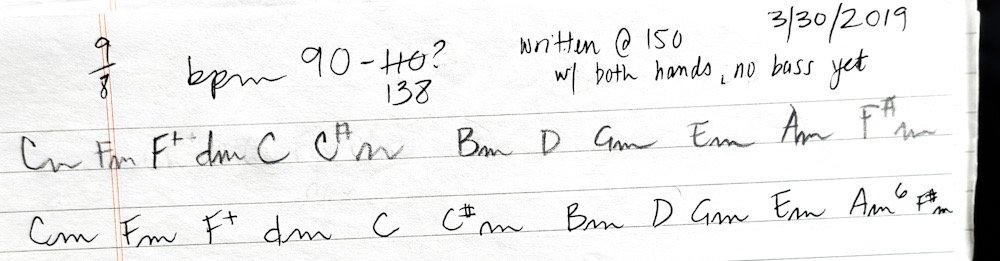 3/30/2019
9/8 bpm 90-110? written @ 150
138 w/ both hands, no bass yet
Cm Fm F+ dm C C#m Bm D Gm Em Am F#m
Cm Fm F+ dm C C#m Bm D Gm Em Am6 F#m